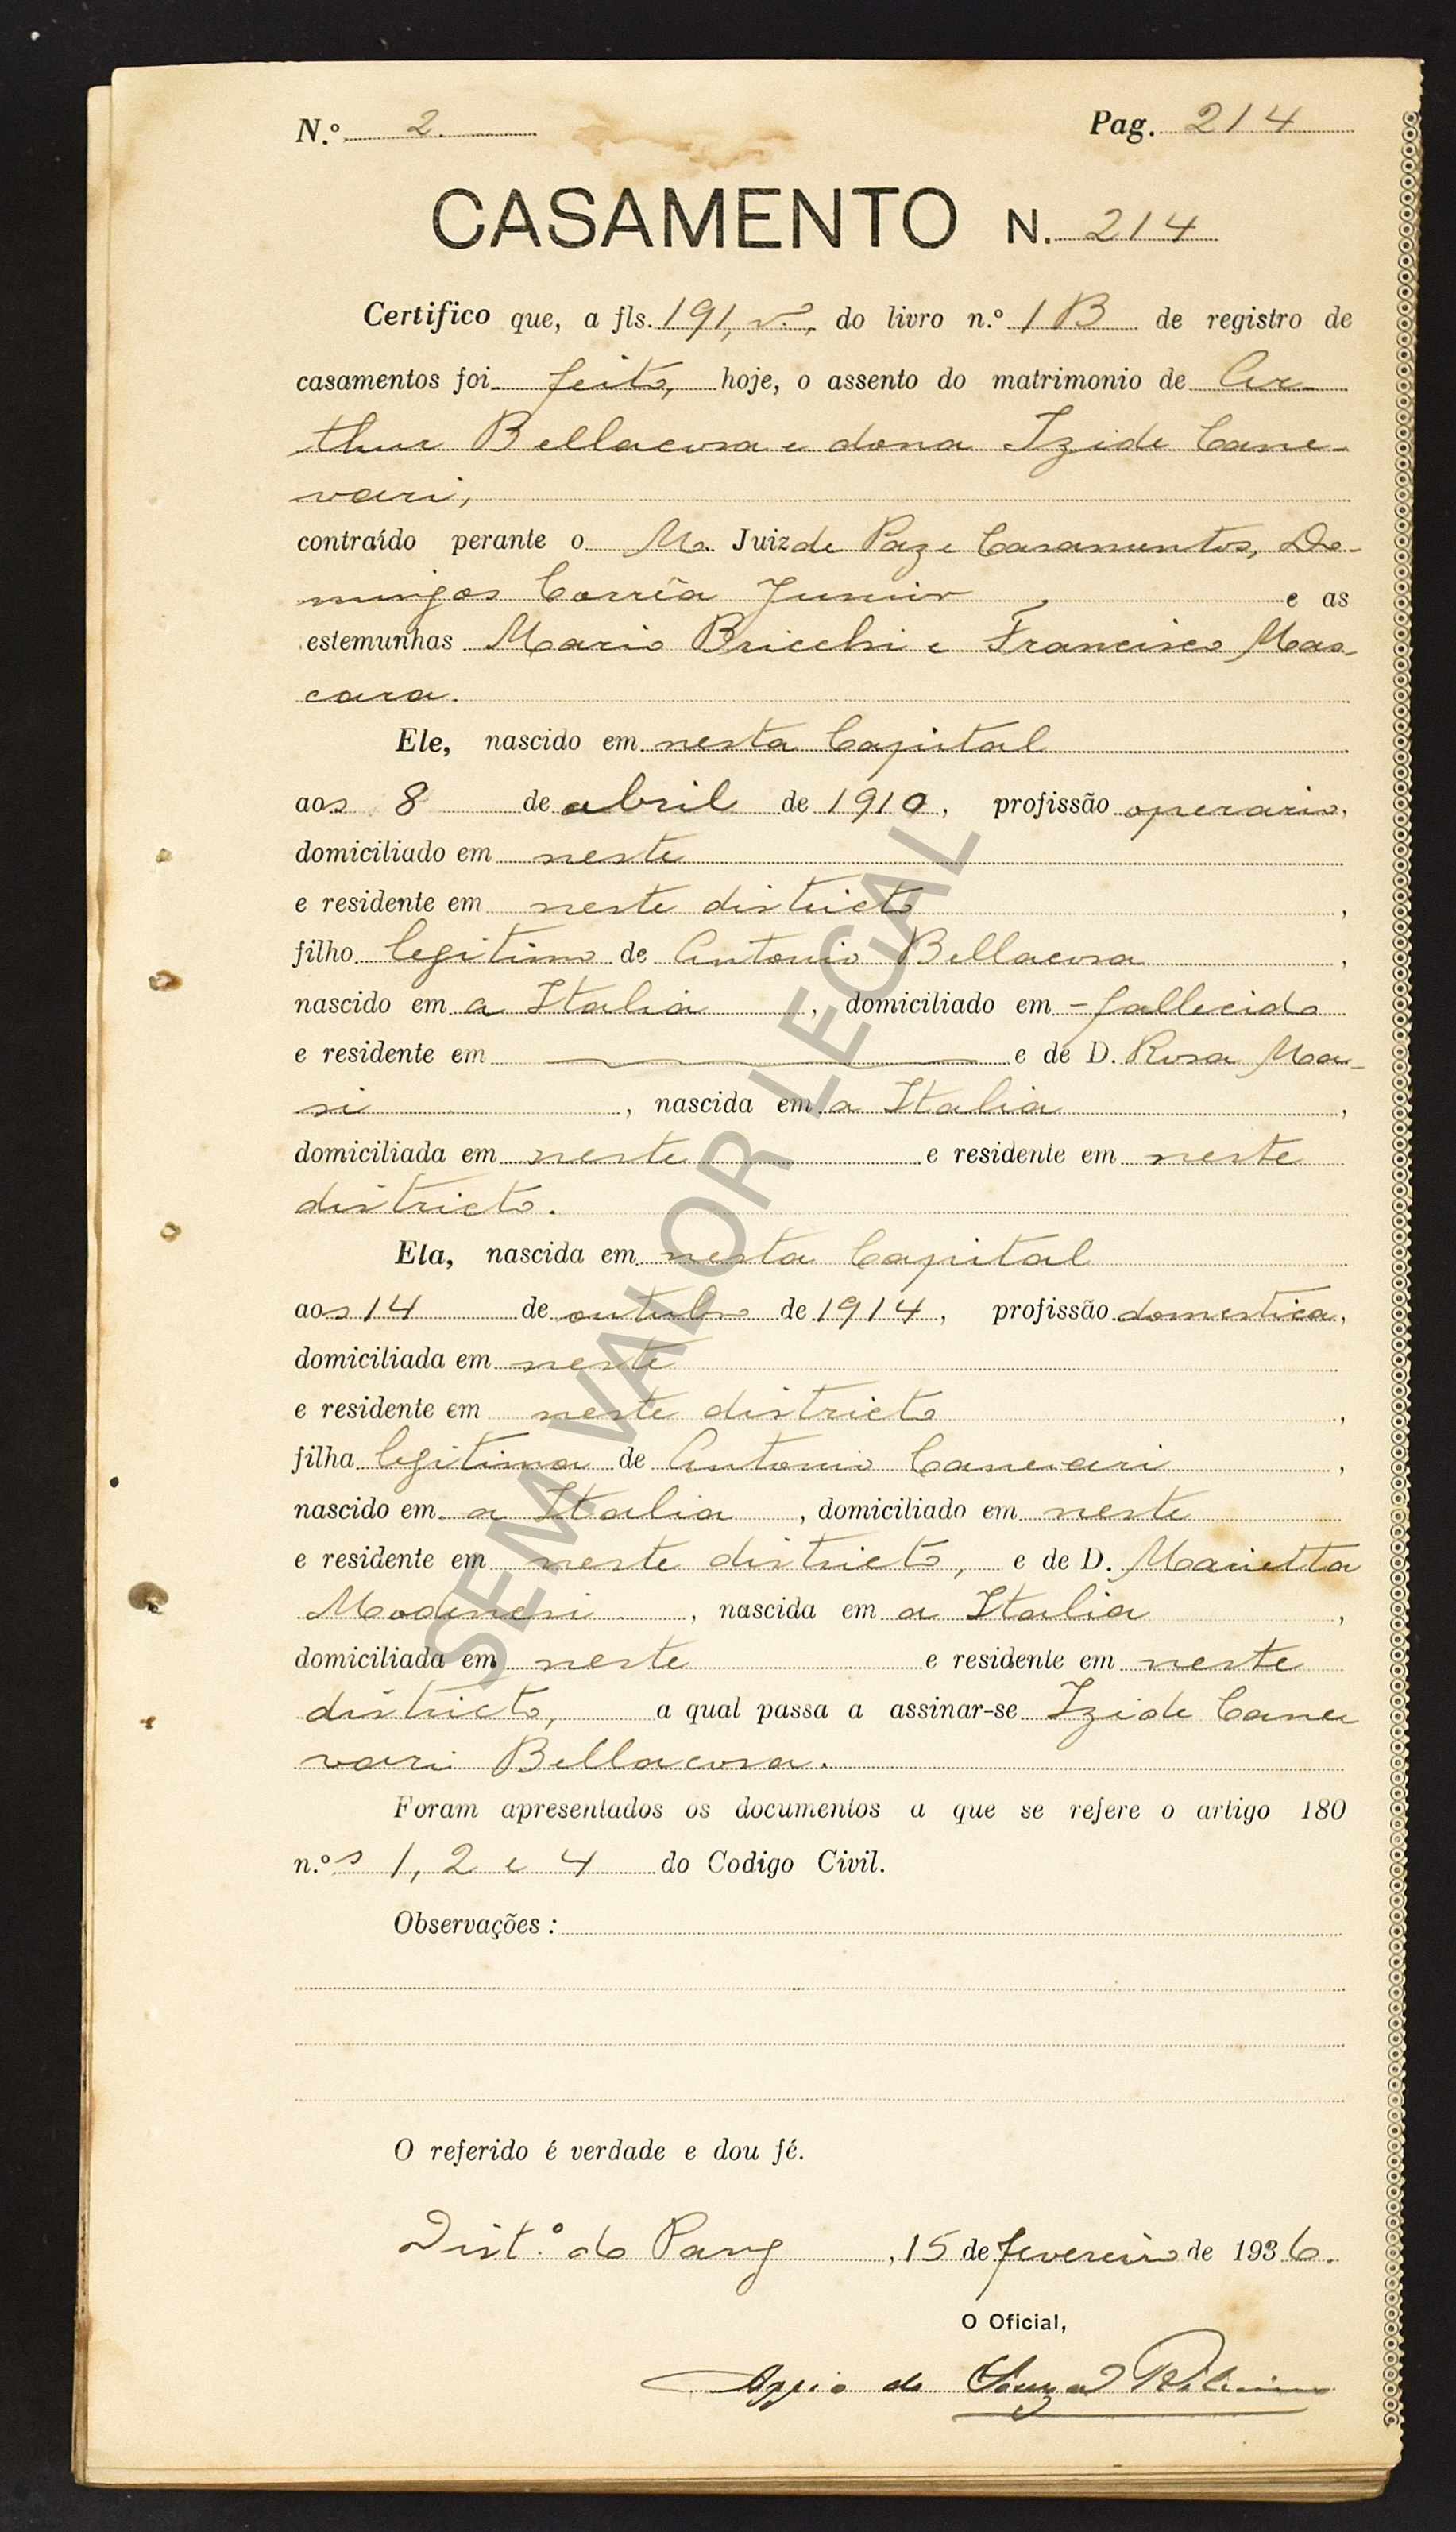 N.º 2. Pag. 214
CASAMENTO N. 214
Certifico que, a fls. 191, v.º, do livro n.º 1 B de registro de
casamentos foi feito, hoje, o assento do matrimonio de Ar-
thur Bellacosa e dona Izide Cane-
vari,
contraído perante o M. Juiz de Paz e Casamentos, Do-
mingos Corrêa Junior, e as
estemunhas Mario Bricchi e Francisco Mas-
cara.
Ele, nascido em nesta Capital
aos 8 de abril de 1910, profissão operario,
domiciliado em neste
e residente em neste districto,
filho legitimo de Antonio Bellacosa,
nascido em a Italia, domiciliado em - fallecido
e residente em e de D. Rosa Ma-
si, nascida em a Italia,
domiciliada em neste e residente em neste
districto.
Ela, nascida em nesta Capital
aos 14 de outubro de 1914, profissão domestica,
domiciliada em neste
e residente em neste districto,
filha legitima de Antonio Canevari,
nascido em a Italia, domiciliado em neste
e residente em neste districto, e de D. Marietta
Modenesi, nascida em a Italia,
domiciliada em neste e residente em neste
districto, a qual passa a assinar-se Izide Cane
vari Bellacosa.
Foram apresentados os documentos a que se refere o artigo 180
n.ºs 1, 2 e 4 do Codigo Civil.
Observações:
O referido é verdade e dou fé.
Dist.º do Pary, 15 de fevereiro de 1936.
O Oficial,
de Souza
SEM VALOR LEGAL